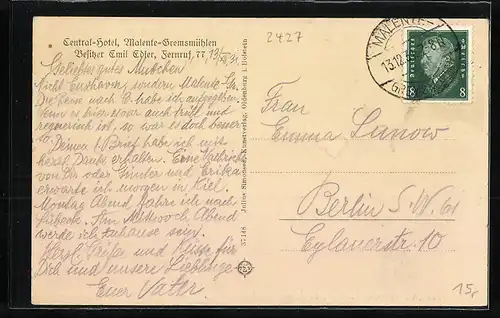 Central-Hotel, Malente-Gremsmühlen
Besitzer Emil Edler, Fernruf. 77
13/XII 31
Geliebtes gutes Muttchen
Nicht Cuxhaven, sondern Malente-Gr.
Die Reise nach C. habe ich aufgegeben,
denn es hier zwar auch trüb und
regnerisch ist, so war es doch besser
so. Deinen 1. Brief habe ich mit
herzl. Dank erhalten. Eine Nachricht
von Dir oder Günter und Erika
erwarte ich morgen in Kiel.
Montag Abend fahre ich nach
Lübeck. Am Mittwoch Abend
werde ich zuhause sein.
Herzl. Grüße und Küsse für
Dich und unsere Lieblinge
Euer Vater.
37148 Julius Simonsen, Kunstverlag, Oldenburg i. Holstein
2427
MALENTE-
13.12.
8
Deutsches Reich
8
Frau
Emma Lanow
Berlin S.W. 61
Eylauerstr. 10
15,-